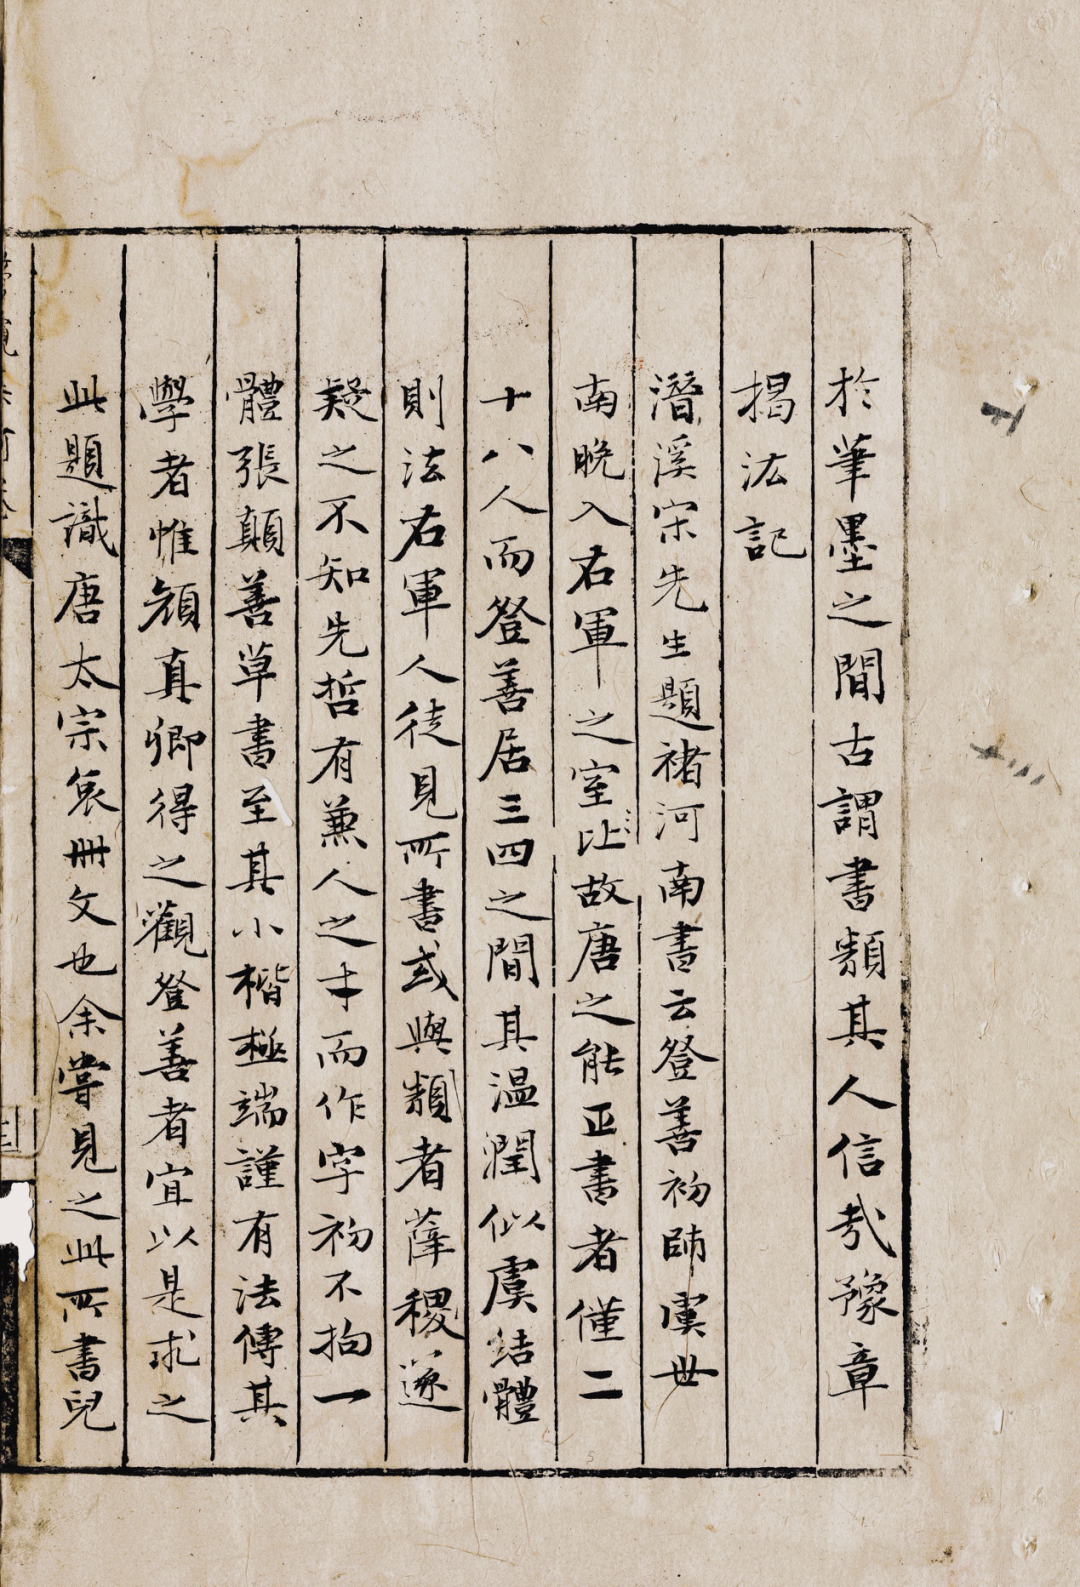 於筆墨之間古謂書類其人信哉豫章
揭汯記
潛溪宋先生題褚河南書云登善初師虞世
南晚入右軍之室比故唐之能正書者僅二
十八人而登善居三四之間其温潤似虞結體
則法右軍人徒見所書或與類者薛稷遂
疑之不知先哲有兼人之才而作字初不拘一
體張顛善草書至其小楷極端謹有法傳其
學者惟顏真卿得之觀登善者宜以是求之
此題識唐太宗哀冊文也余嘗見之此所書兒